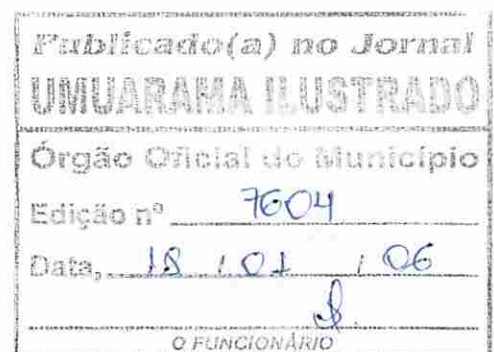 Publicado(a) no Jornal
UMUARAMA ILUSTRADO
Órgão Oficial do Município
Edição nº 7604
Data, 18 / 01 / 06
O FUNCIONÁRIO